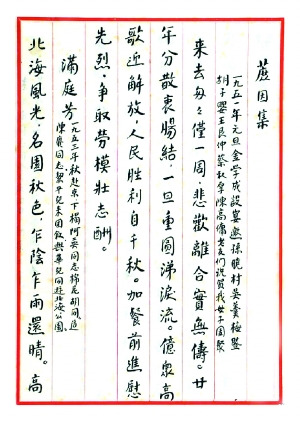 蘆因集
一九五一年元旦金學成設宴邀孫曉村吳羹梅暨
胡子嬰王艮仲蔡承新陳高傭老友们祝賀我母子團聚
来去匆匆僅一周，悲歡離合實無儔。廿
年分散衷腸結，一旦重圓涕淚流。億衆高
歌迎解放，人民勝利自千秋。加餐前進慰
先烈，争取勞模壯志酬。
滿庭芳
一九五三年秋赴京下榻阿英同志棉花胡同邀
陳
同志
兒来園叙與華兒同赴北海公園
北海風光，名園秋色，乍陰乍雨還晴。高